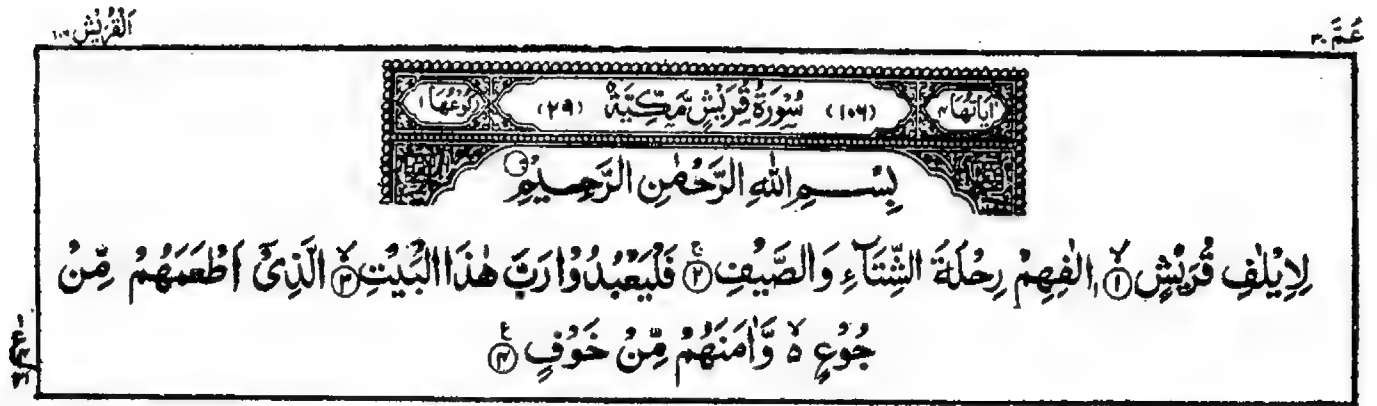 عَمَّ ۳۰
اَلْقُرَيْش ۱۰۶
اٰيَاتُهَا ۴
(۱۰۶) سُوْرَةُ قُرَيْشٍ مَّكِّيَّةٌ (۲۹)
رُكُوْعُهَا ۱
بِسْمِ اللّٰهِ الرَّحْمٰنِ الرَّحِيْمِ
لِاِيْلٰفِ قُرَيْشٍ ۙ﴿۱﴾ اٖلٰفِهِمْ رِحْلَةَ الشِّتَآءِ وَالصَّيْفِ ۚ﴿۲﴾ فَلْيَعْبُدُوْا رَبَّ هٰذَا الْبَيْتِ ۙ﴿۳﴾ الَّذِيْۤ اَطْعَمَهُمْ مِّنْ
جُوْعٍ ۙ۬ وَّاٰمَنَهُمْ مِّنْ خَوْفٍ ۠﴿۴﴾